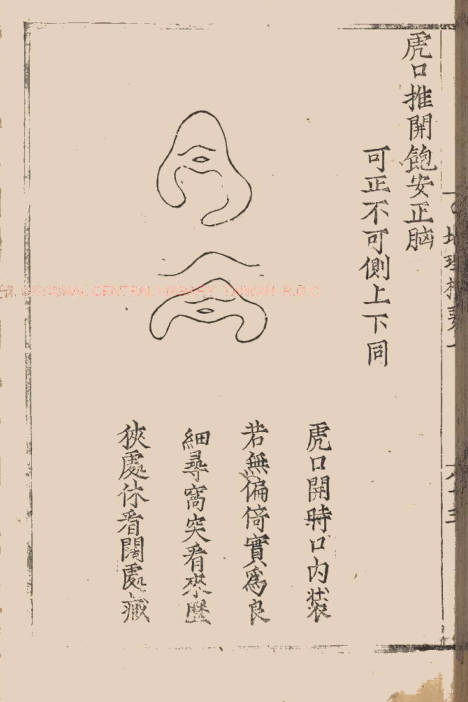 虎口推開飽安正腦
可正不可側上下同
虎口開時口内裝
若無偏倚實爲良
細尋窩突看來歷
狹處休看闊處藏
NATIONAL CENTRAL LIBRARY, TAIWAN, R.O.C